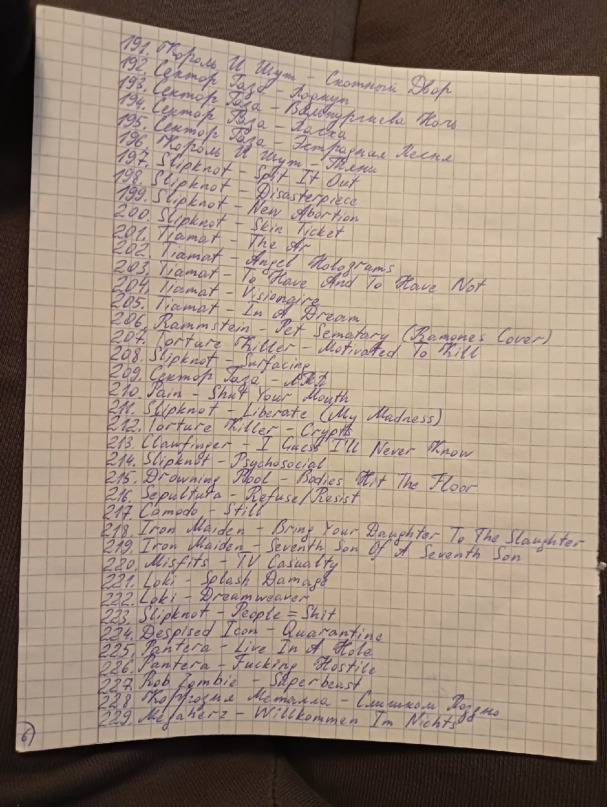 191. Король И Шут - Скотный Двор
192. Сектор Газа - Колхоз
193. Сектор Газа - Вальпургиева Ночь
194. Сектор Газа - Ляжка
195. Сектор Газа - Эстрадная Песня
196. Король И Шут - Тяни
197. Slipknot - Spit It Out
198. Slipknot - Disasterpiece
199. Slipknot - New Abortion
200. Slipknot - Skin Ticket
201. Tiamat - The Ar
202. Tiamat - Angel Holograms
203. Tiamat - To Have And To Have Not
204. Tiamat - Visionaire
205. Tiamat - In A Dream
206. Rammstein - Pet Sematary (Ramones Cover)
207. Torture Killer - Motivated To Kill
208. Slipknot - Surfacing
209. Сектор Газа -
210. Pain - Shut Your Mouth
211. Slipknot - Liberate (My Madness)
212. Torture Killer - Crypts
213. Clawfinger - I Guess I'll Never Know
214. Slipknot - Psychosocial
215. Drowning Pool - Bodies Hit The Floor
216. Sepultura - Refuse/Resist
217. Comodo - Still
218. Iron Maiden - Bring Your Daughter To The Slaughter
219. Iron Maiden - Seventh Son Of A Seventh Son
220. Misfits - TV Casualty
221. Loki - Splash Damage
222. Loki - Dreamweaver
223. Slipknot - People = Shit
224. Despised Icon - Quarantine
225. Pantera - Live In A Hole
226. Pantera - Fucking Hostile
227. Rob Zombie - Superbeast
228. Коррозия Металла - Слишком Поздно
229. Megaherz - Willkommen Im Nichts
6)